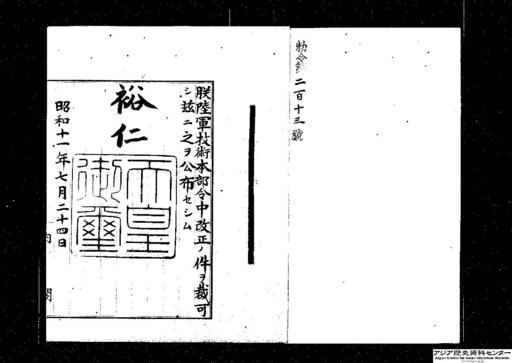 勅令二百十三號
朕陸軍技術本部令中改正ノ件ヲ裁可
シ茲ニ之ヲ公布セシム
裕仁
天皇御璽
昭和十一年七月二十四日
内閣
アジア歴史資料センター
Japan Center for Asian Historical Records